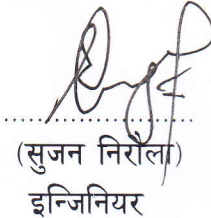 (सुजन निरौला)
इन्जिनियर